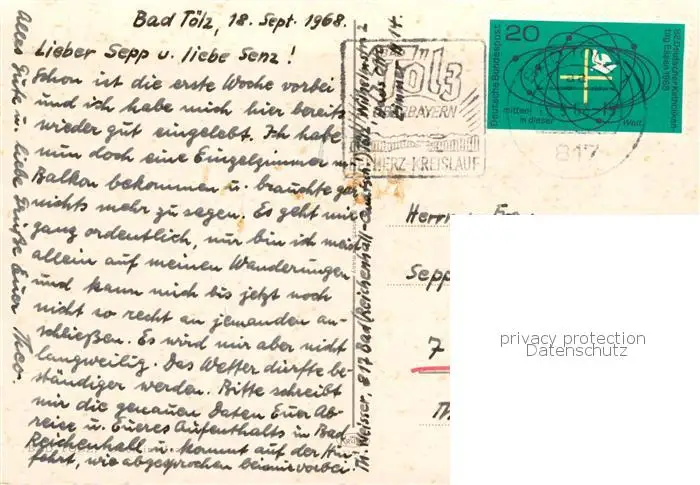 Bad Tölz, 18. Sept. 1968.
Lieber Sepp u. liebe Senz!
Schon ist die erste Woche vorbei
und ich habe mich hier bereits
wieder gut eingelebt. Ich habe
nun doch eine Einzelzimmer m.
Balkon bekommen u. brauchte gar
nichts mehr zu sagen. Es geht mir
ganz ordentlich, nur bin ich meist
allein auf meinen Wanderungen
und kann mich bis jetzt noch
nicht so recht an jemanden an-
schließen. Es wird mir aber nicht
langweilig. Das Wetter dürfte be-
ständiger werden. Bitte schreibt
mir die genauen Daten Euer Ab-
reise u. Eueres Aufenthalts in Bad
Reichenhall u. kommt auf der Hin-
fahrt, wie abgesprochen bei mir vorbei!
Alles Gute u. liebe Grüße Euer Theo.
Th. Weisser, 817 Bad
Zimmer # 14.
Tölz
OBERBAYERN
HERZ-KREISLAUF
20
Deutsche Bundespost
82. Deutscher Katholiken-
tag Essen 1968
mitten
in dieser
Welt
817
Herrn u. Frau
Sepp
7
Th
privacy protection
Datenschutz